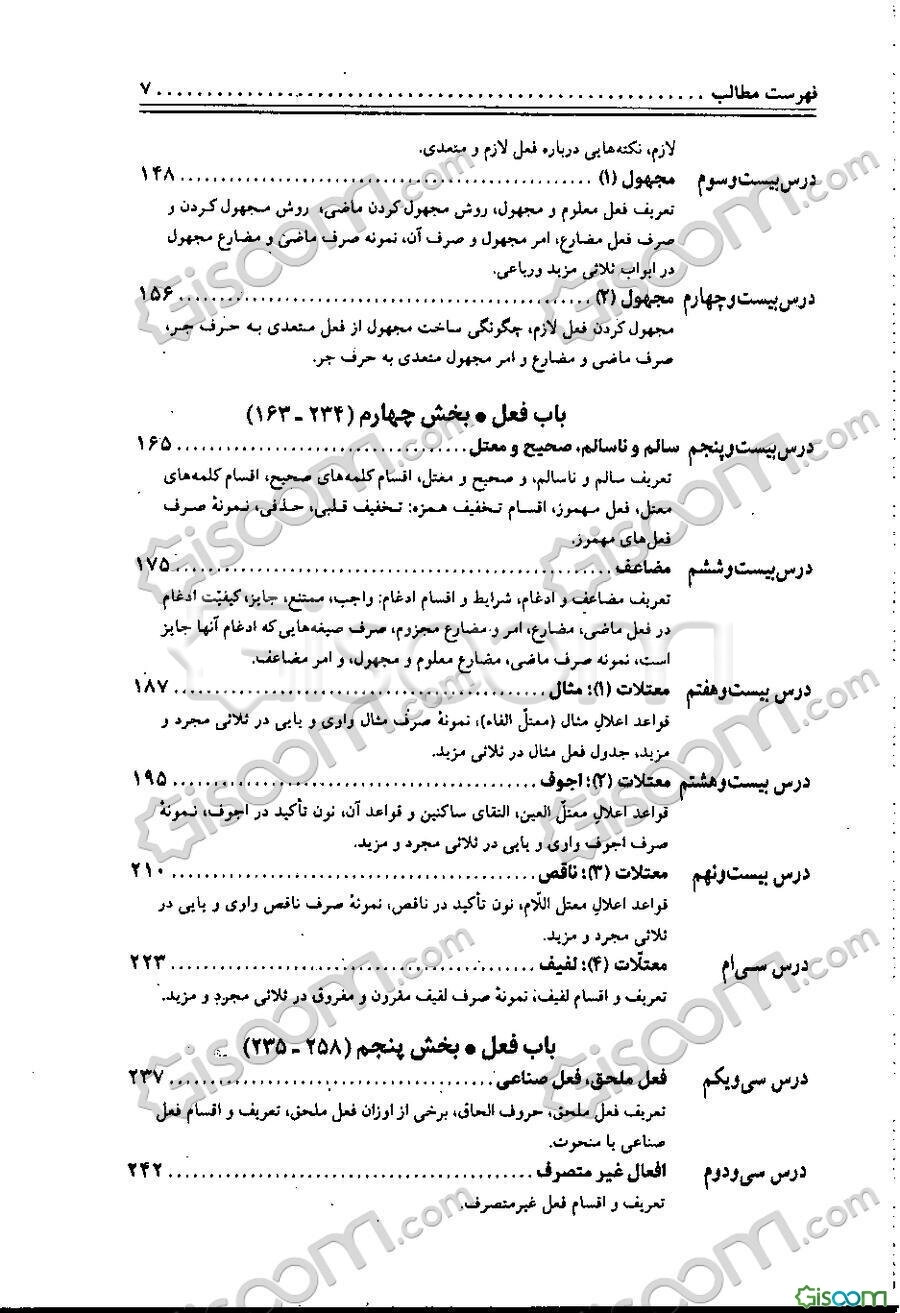 فهرست مطالب ........................................................ ۷
لازم، نکته‌هایی درباره فعل لازم و متعدی.
درس بیست‌وسوم مجهول (۱) ............................................ ۱۴۸
تعریف فعل معلوم و مجهول، روش مجهول کردن ماضی، روش مجهول کردن و
صرف فعل مضارع، امر مجهول و صرف آن، نمونه صرف ماضی و مضارع مجهول
در ابواب ثلاثی مزید ورباعی.
درس بیست‌وچهارم مجهول (۲) ............................................ ۱۵۶
مجهول کردن فعل لازم، چگونگی ساخت مجهول از فعل متعدی به حرف جر،
صرف ماضی و مضارع و امر مجهول متعدی به حرف جر.
باب فعل • بخش چهارم (۲۳۴ ـ ۱۶۳)
درس بیست‌وپنجم سالم و ناسالم، صحیح و معتل .................................... ۱۶۵
تعریف سالم و ناسالم، و صحیح و معتل، اقسام کلمه‌های صحیح، اقسام کلمه‌های
معتل، فعل مهموز، اقسام تخفیف همزه: تخفیف قلبی، حذفی، نمونهٔ صرف
فعل‌های مهموز.
درس بیست‌وششم مضاعف ................................................ ۱۷۵
تعریف مضاعف و ادغام، شرایط و اقسام ادغام: واجب، ممتنع، جایز، کیفیّت ادغام
در فعل ماضی، مضارع، امر و مضارع مجزوم، صرف صیغه‌هایی که ادغام آنها جایز
است، نمونه صرف ماضی، مضارع معلوم و مجهول، و امر مضاعف.
درس بیست‌وهفتم معتلات (۱): مثال .......................................... ۱۸۷
قواعد اعلال مثال (معتلّ الفاء)، نمونهٔ صرف مثال واوی و یایی در ثلاثی مجرد و
مزید، جدول فعل مثال در ثلاثی مزید.
درس بیست‌وهشتم معتلات (۲): اجوف ........................................ ۱۹۵
قواعد اعلالِ معتلّ العین، التقای ساکنین و قواعد آن، نون تأکید در اجوف، نمونهٔ
صرف اجوف واوی و یایی در ثلاثی مجرد و مزید.
درس بیست‌ونهم معتلات (۳): ناقص ........................................ ۲۱۰
قواعد اعلالِ معتل اللّام، نون تأکید در ناقص، نمونهٔ صرف ناقص واوی و یایی در
ثلاثی مجرد و مزید.
درس سی‌ام معتلّات (۴): لفیف ........................................ ۲۲۳
تعریف و اقسام لفیف، نمونهٔ صرف لفیف مقرون و مفروق در ثلاثی مجرد و مزید.
باب فعل • بخش پنجم (۲۵۸ ـ ۲۳۵)
درس سی‌ویکم فعل ملحق، فعل صناعی .................................... ۲۳۷
تعریف فعل ملحق، حروف الحاق، برخی از اوزان فعل ملحق، تعریف و اقسام فعل
صناعی یا منحوت.
درس سی‌ودوم افعال غیر متصرف ........................................ ۲۴۲
تعریف و اقسام فعل غیرمتصرف.
Gisoom